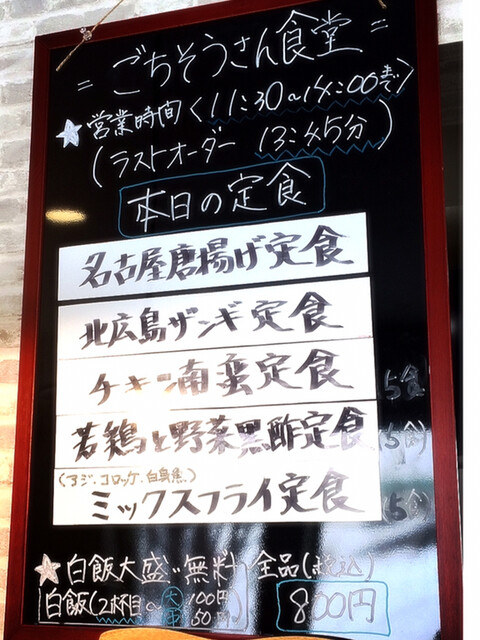 = ごちそうさん食堂 =
★営業時間〈11:30~14:00まで〉
(ラストオーダー 13:45分)
本日の定食
名古屋唐揚げ定食
北広島ザンギ定食
チキン南蛮定食 5食
若鶏と野菜黒酢定食 (5食)
(アジ、コロッケ、白身魚)
ミックスフライ定食 (5食)
★白飯大盛‥無料 全品(税込)
白飯(2杯目~大 100円 800円
50円)